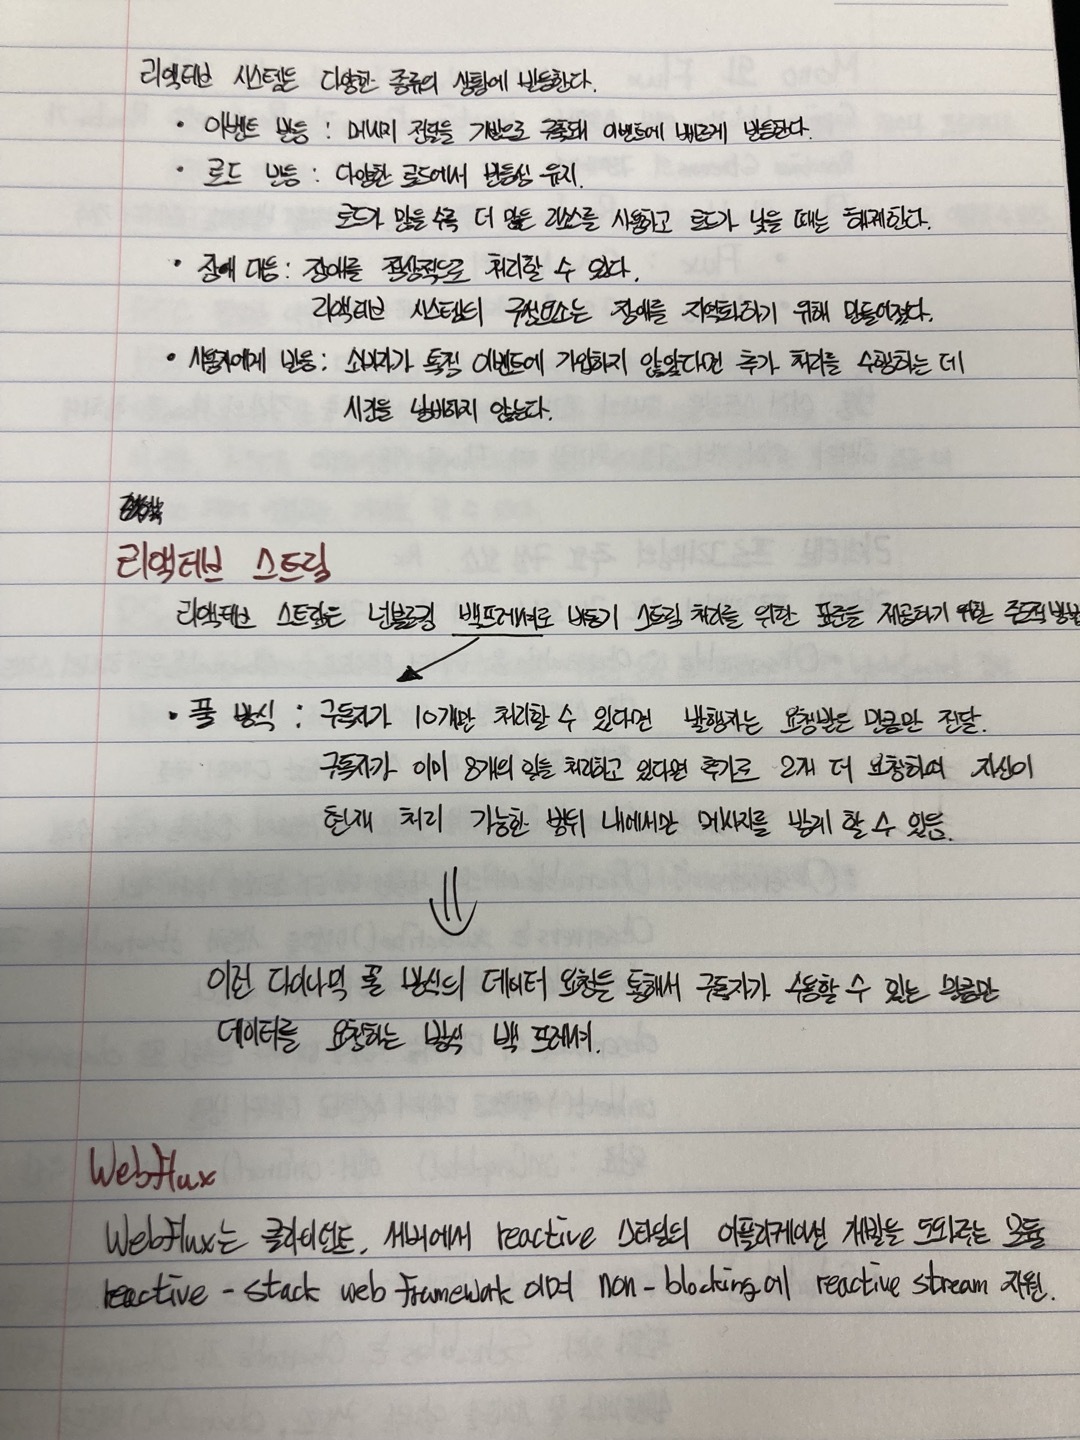 리액티브 시스템은 다양한 종류의 상황에 반응한다.
• 이벤트 반응 : 메시지 전달을 기반으로 구축돼 이벤트에 빠르게 반응한다.
• 로드 반응 : 다양한 로드에서 반응성 유지.
로드가 많을 수록 더 많은 리소스를 사용하고 로드가 낮을 때는 해제한다.
• 장애 대응 : 장애를 정상적으로 처리할 수 있다.
리액티브 시스템의 구성요소는 장애를 지역화하기 위해 만들어졌다.
• 사용자에게 반응 : 소비자가 특정 이벤트에 가입하지 않았다면 추가 처리를 수행하는 데
시간을 낭비하지 않는다.
리액티브 스트림
리액티브 스트림은 넌블로킹 백프레셔로 비동기 스트림 처리를 위한 표준을 제공하기 위한
• 풀 방식 : 구독자가 10개만 처리할 수 있다면 발행자는 요청받은 만큼만 전달.
구독자가 이미 8개의 일을 처리하고 있다면 추가로 2개 더 요청하여 자신이
현재 처리 가능한 범위 내에서만 메시지를 받게 할 수 있음.
이런 다이나믹 풀 방식의 데이터 요청을 통해서 구독자가 수용할 수 있는 만큼만
데이터를 요청하는 방식 백 프레셔.
WebFlux
WebFlux는 클라이언트, 서버에서 reactive 스타일의 어플리케이션 개발을 도와주는 모듈
reactive - stack web framework 이며 non - blocking에 reactive stream 지원.